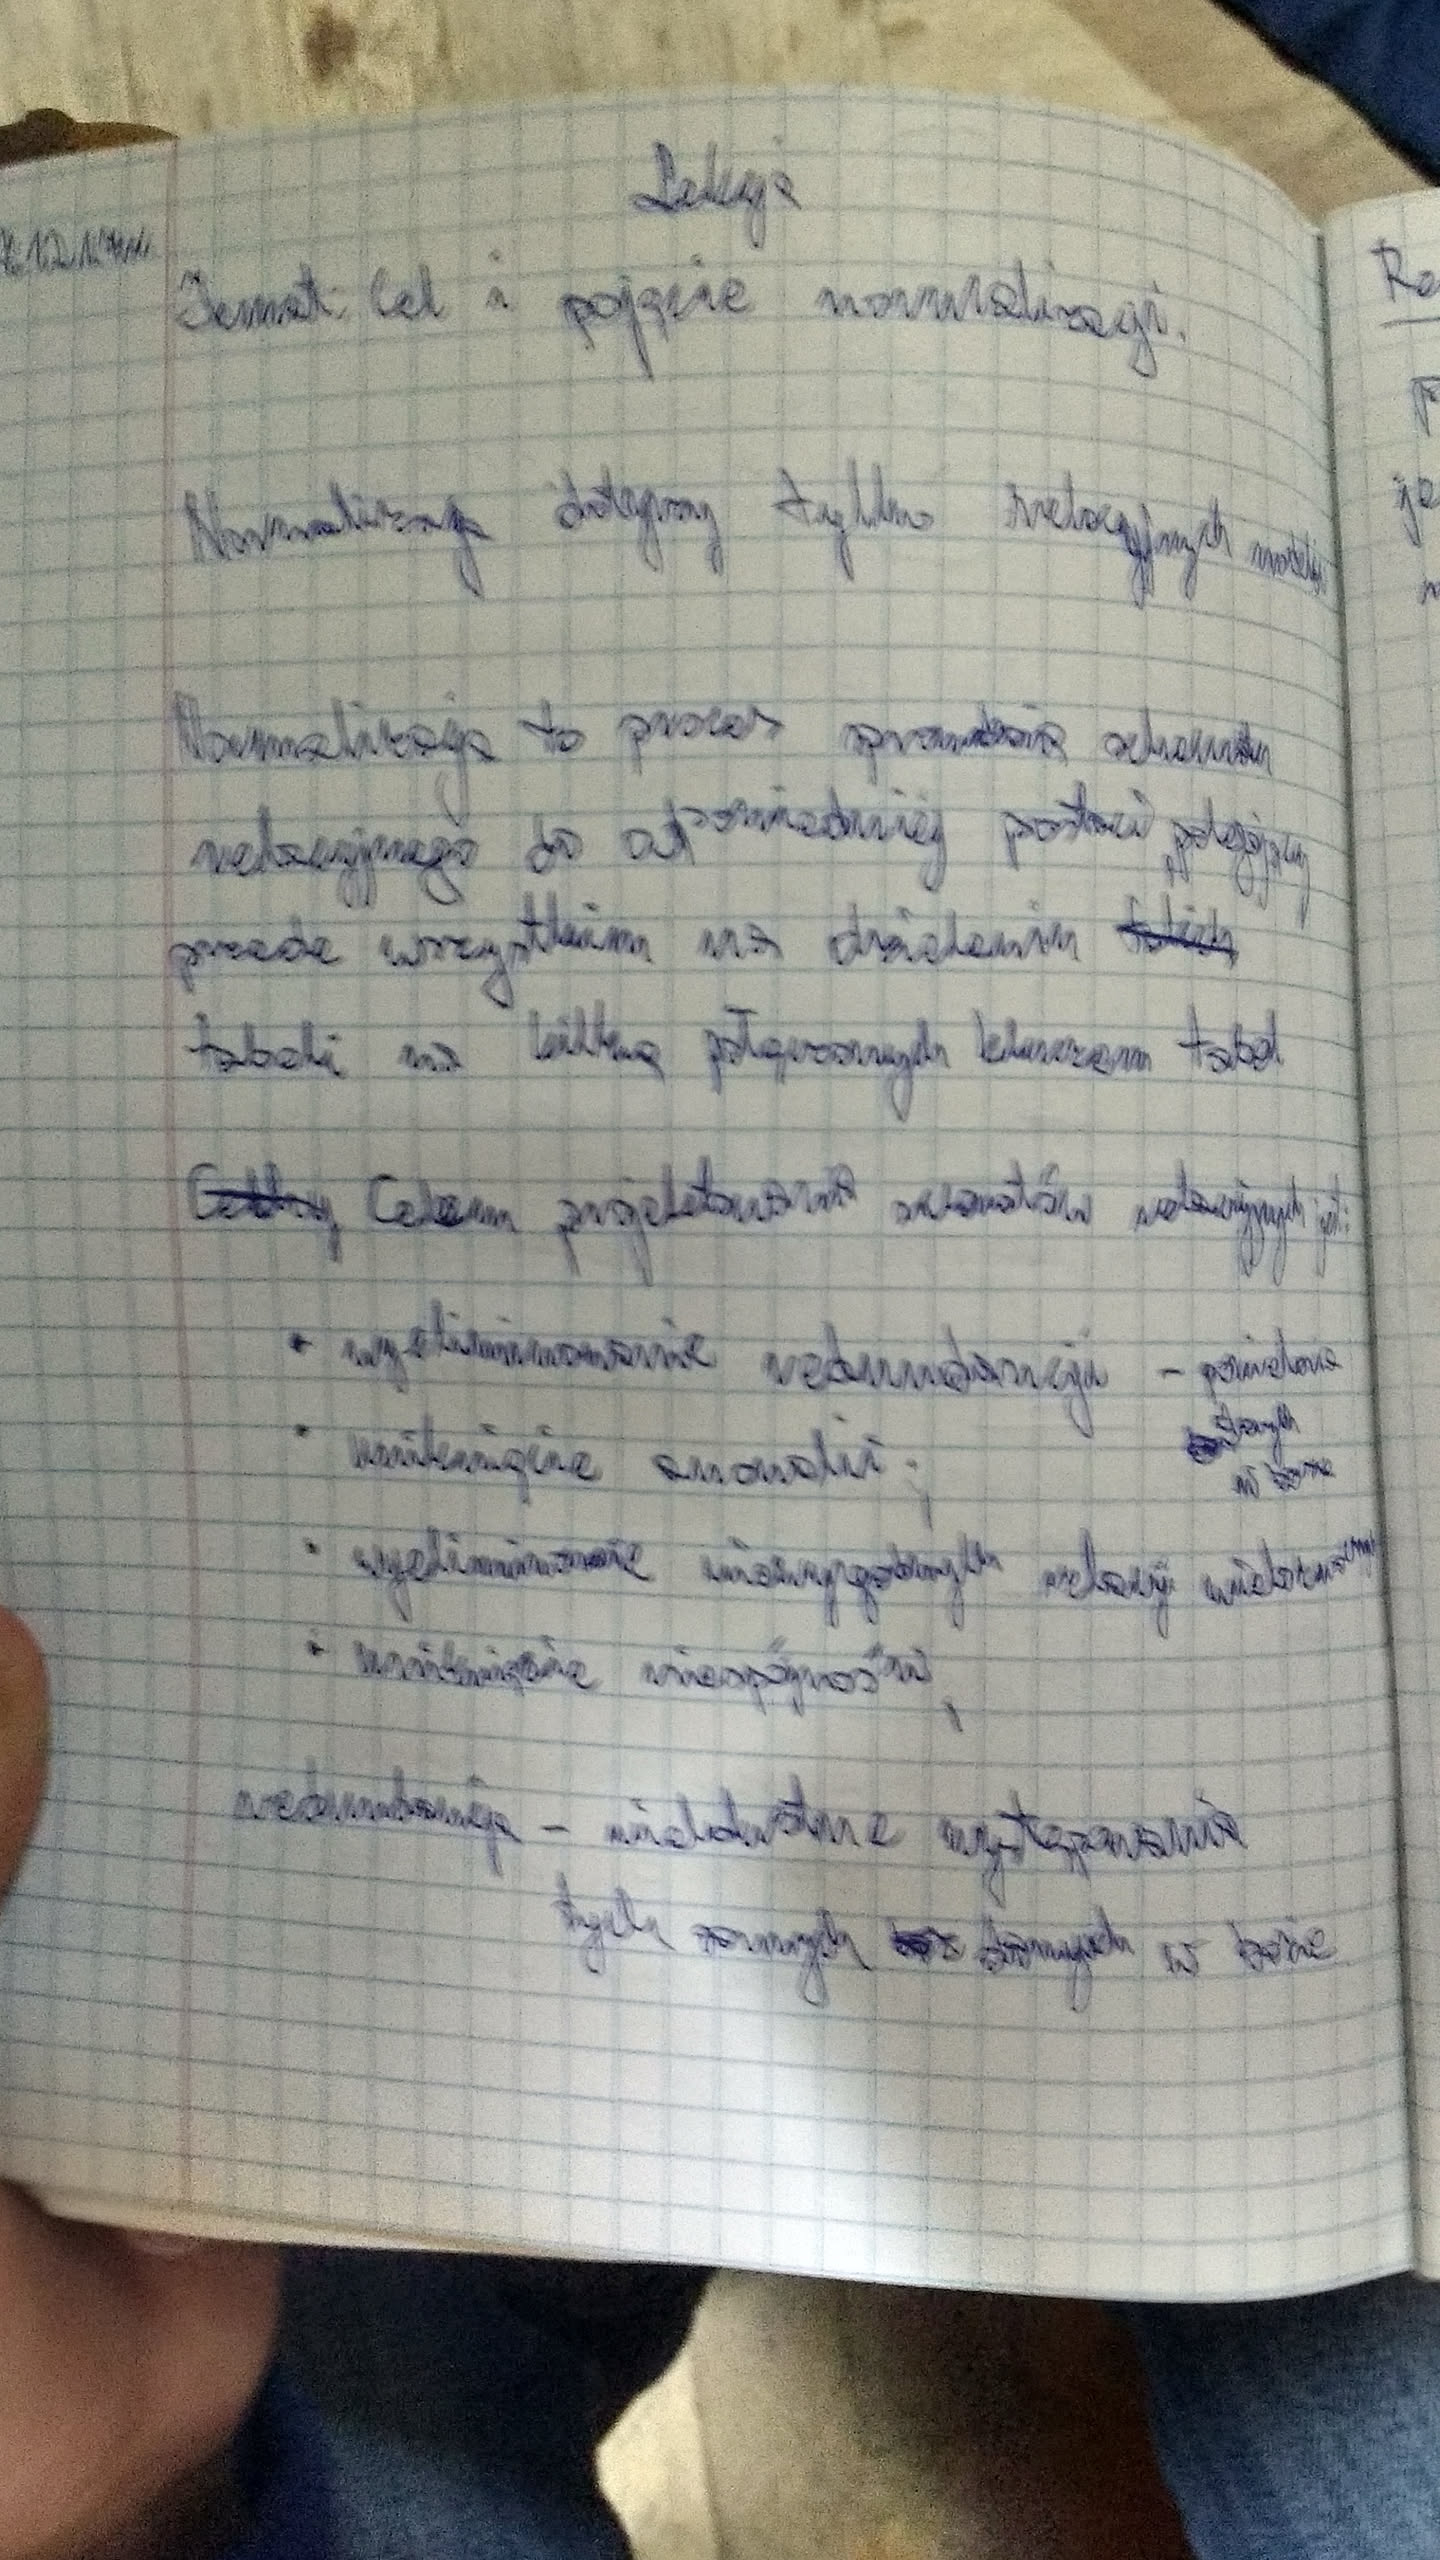 Lekcja
Temat: Cel i pojęcie normalizacji.
Normalizacja dotyczy tylko relacyjnych modeli
Normalizacja to proces sprowadzania schematu
relacyjnego do odpowiedniej postaci, polegający
przede wszystkim na dzieleniu
tabeli na kilka połączonych kluczem tabel
Celem projektowania schematów relacyjnych jest:
• wyeliminowanie redundancji - powielanie
danych
w bazie
• uniknięcie anomalii;
• wyeliminowanie relacji
• uniknięcie niespójności,
redundancja - wielokrotne występowania
tych samych danych w bazie
Re
p
je